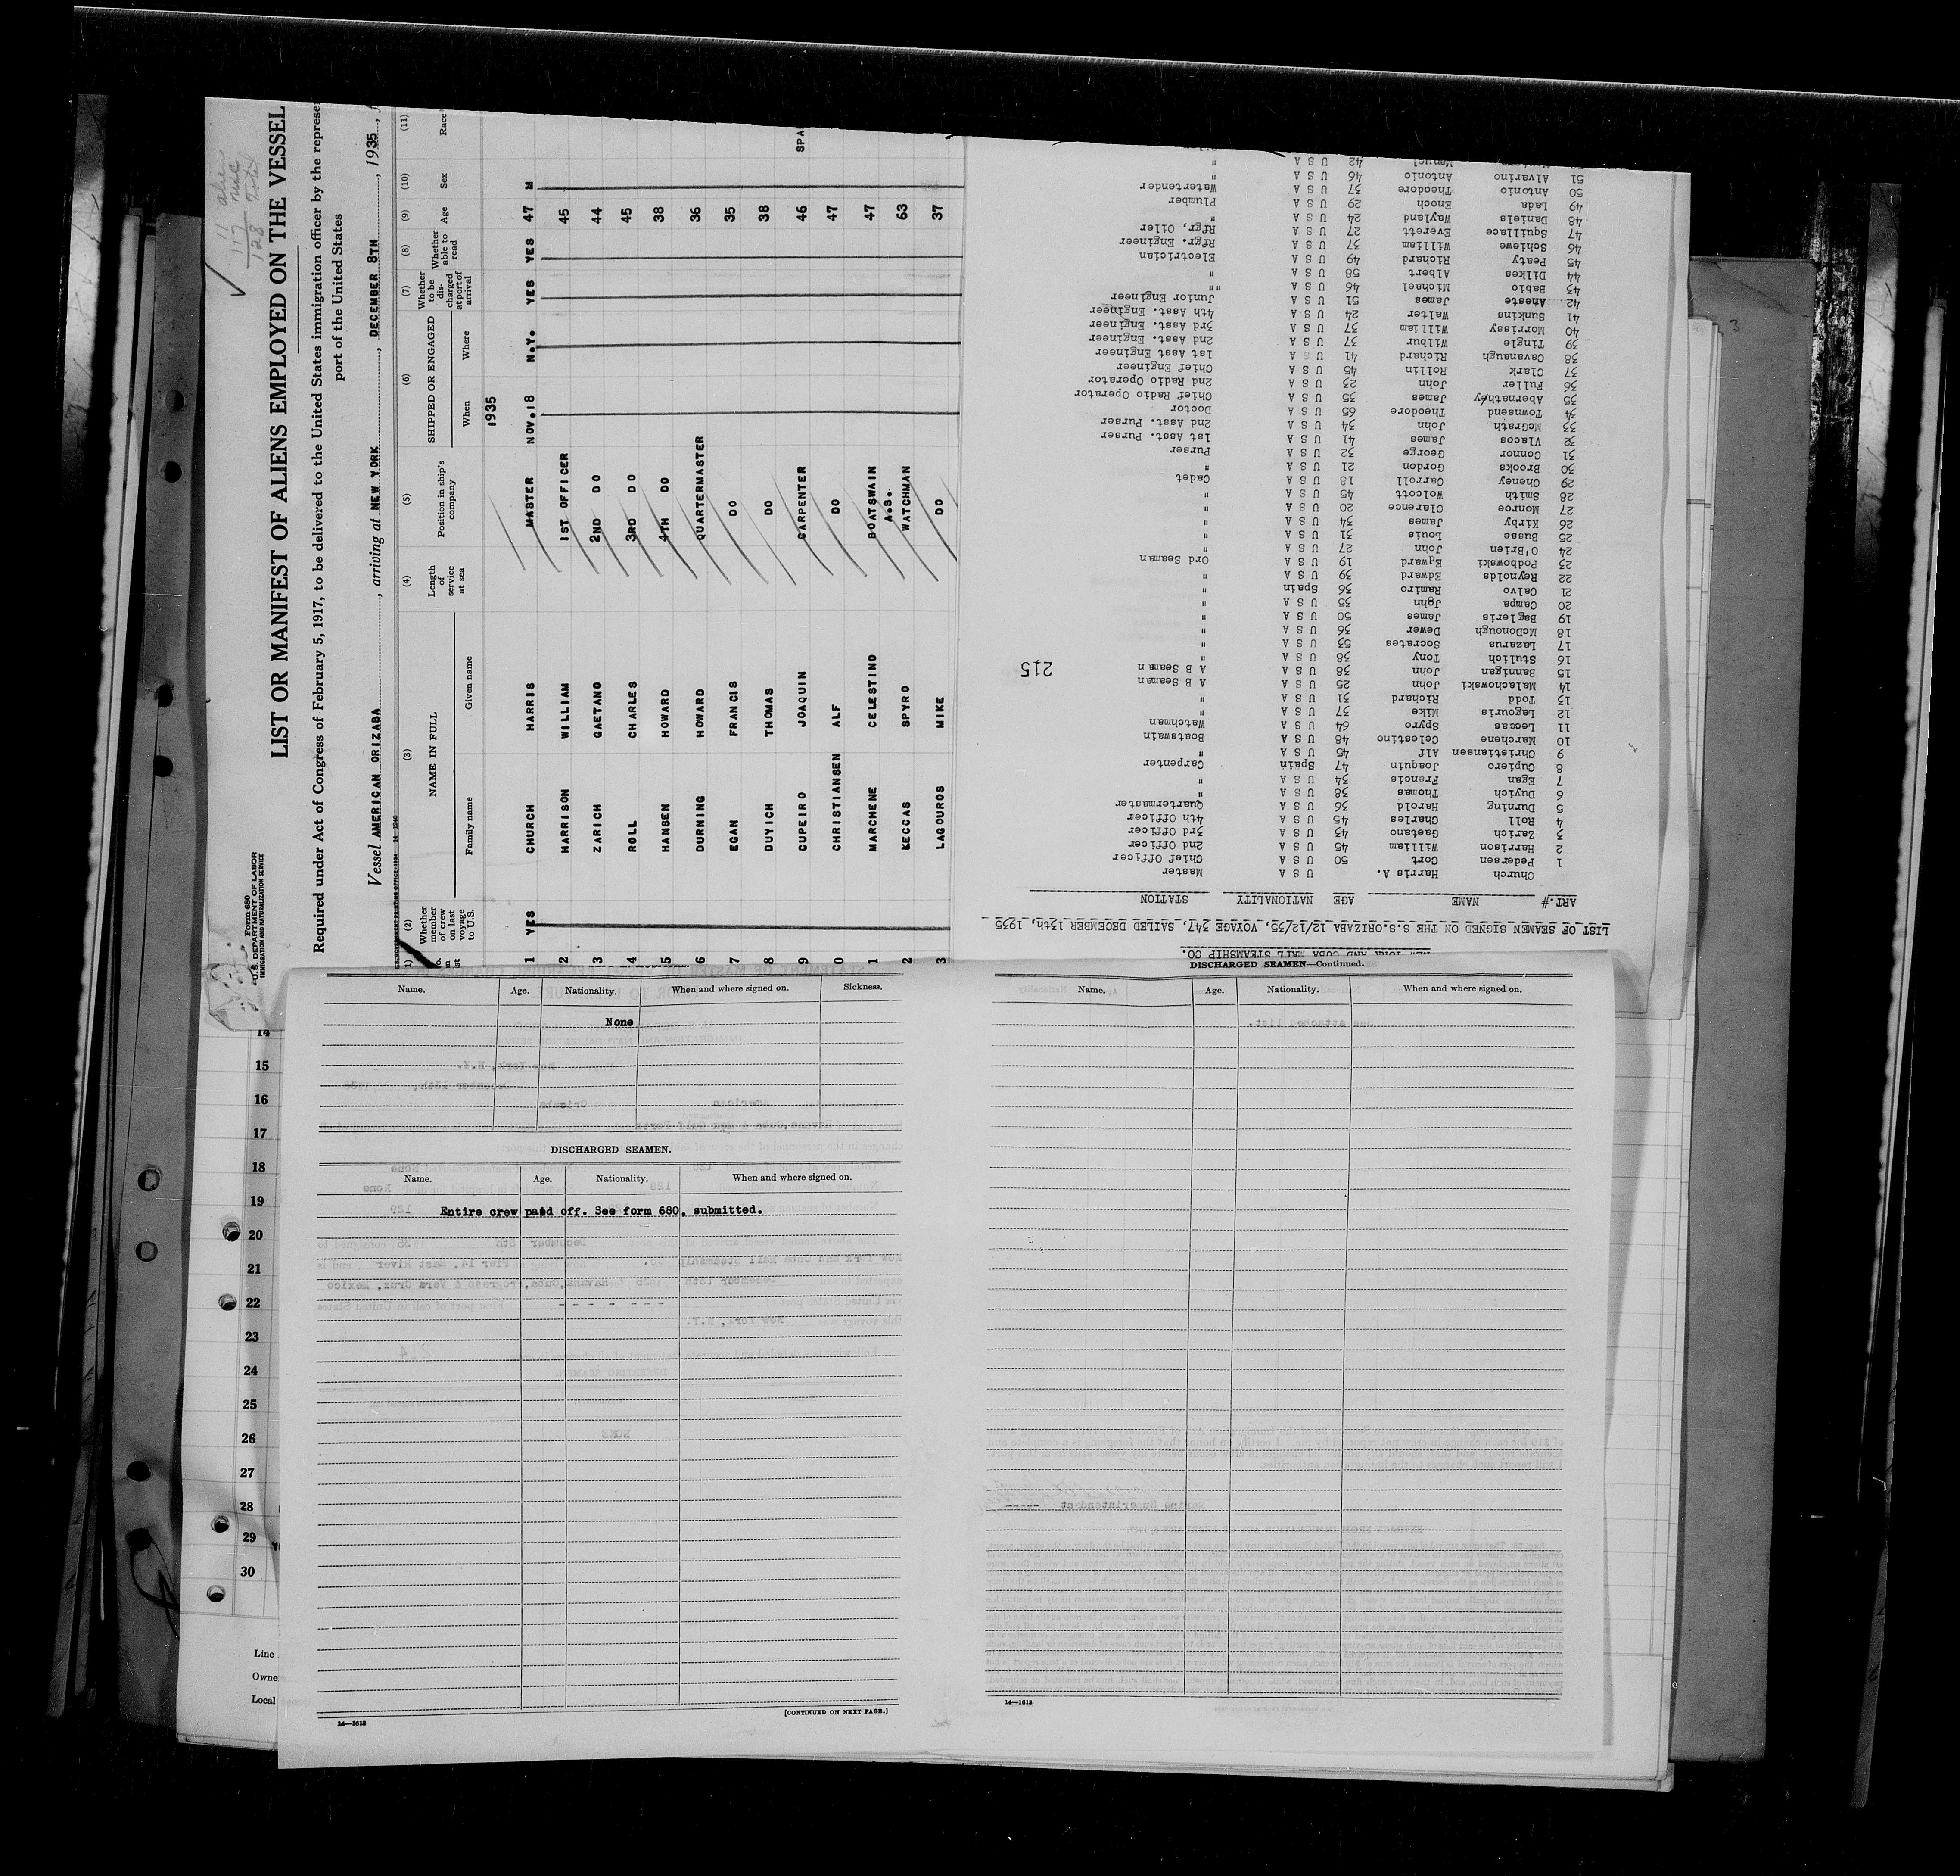 ✓ 11
117
128
Form 680
U.S. DEPARTMENT OF LABOR
IMMIGRATION AND NATURALIZATION SERVICE
LIST OR MANIFEST OF ALIENS EMPLOYED ON THE VESSEL
Required under Act of Congress of February 5, 1917, to be delivered to the United States immigration officer by the
port of the United States
Vessel AMERICAN ORIZABA, arriving at NEW YORK, DECEMBER 8TH, 1935,
(2) (3) (4) (5) (6) (7) (8) (9) (10) (11)
Whether member of crew on last voyage to U.S. NAME IN FULL Family name Given name Length of service at sea Position in ship's company SHIPPED OR ENGAGED When Where Whether to be discharged at port of arrival Whether able to read Age Sex Race
1935
1 YES CHURCH HARRIS MASTER NOV.18 N.Y. YES YES 47 M
2 HARRISON WILLIAM 1ST OFFICER 45
3 ZARICH GAETANO 2ND DO 44
4 ROLL CHARLES 3RD DO 45
5 HANSEN HOWARD 4TH DO 38
6 DURNING HOWARD QUARTERMASTER 36
7 EGAN FRANCIS DO 35
8 DUYICH THOMAS DO 38
9 CUPEIRO JOAQUIN CARPENTER 46 SPA
0 CHRISTIANSEN ALF DO 47
1 MARCHENE CELESTINO BOATSWAIN 47
A.S.
2 KECCAS SPYRO WATCHMAN 63
3 LAGOUROS MIKE DO 37
NEW YORK AND CUBA MAIL STEAMSHIP CO.
LIST OF SEAMEN SIGNED ON THE S.S.ORIZABA 12/12/35, VOYAGE 347, SAILED DECEMBER 13th, 1935
ART.# NAME AGE NATIONALITY STATION
Church Harris A. U S A Master
1 Pedersen Cort 50 U S A Chief Officer
2 Harrison William 45 U S A 2nd Officer
3 Zarich Gaetano 43 U S A 3rd Officer
4 Roll Charles 45 U S A 4th Officer
5 Durning Harold 36 U S A Quartermaster
6 Duyich Thomas 38 U S A "
7 Egan Francis 34 U S A "
8 Cupiero Joaquin 47 Spain Carpenter
9 Christiansen Alf 45 U S A "
10 Marchene Celestino 48 U S A Boatswain
11 Leccas Spyro 64 U S A Watchman
12 Lagouris Mike 37 U S A "
13 Todd Richard 31 U S A "
14 Malachowski John 25 U S A A B Seaman
15 Bannigan John 38 U S A A B Seaman
215
16 Stulich Tony 38 U S A "
17 Lazarus Socrates 53 U S A "
18 McDonough Dewer 36 U S A "
19 Bagleris James 50 U S A "
20 Campa John 35 U S A "
21 Calvo Ramiro 36 Spain "
22 Reynolds Edward 39 U S A "
23 Podbowski Edward 19 U S A Ord Seaman
24 O'Brien John 27 U S A "
25 Busse Louis 31 U S A "
26 Kirby James 34 U S A "
27 Monroe Clarence 20 U S A "
28 Smith Wolcott 45 U S A "
29 Cheney Carroll 18 U S A Cadet
30 Brooks Gordon 21 U S A "
31 Connor George 32 U S A Purser
32 Vlacos James 41 U S A 1st Asst. Purser
33 McGrath John 34 U S A 2nd Asst. Purser
34 Townsend Theodore 65 U S A Doctor
35 Abernathey James 35 U S A Chief Radio Operator
36 Fuller John 23 U S A 2nd Radio Operator
37 Clark Rollin 45 U S A Chief Engineer
38 Cavanaugh Richard 41 U S A 1st Asst Engineer
39 Tingle Wilbur 37 U S A 2nd Asst. Engineer
40 Morrissy William 37 U S A 3rd Asst. Engineer
41 Sunkins Walter 24 U S A 4th Asst. Engineer
42 Aneste James 51 U S A Junior Engineer
43 Babio Michael 46 U S A "
44 Dilkes Albert 58 U S A "
45 Peaty Richard 49 U S A Electrician
46 Schiewe William 37 U S A Rfgr. Engineer
47 Squillace Everett 27 U S A Rfgr, Oiler
48 Daniels Wayland 24 U S A "
49 Lada Enoch 29 U S A Plumber
50 Antonio Theodore 37 U S A Watertender
51 Alvarino Antonio 46 U S A "
Manuel 42 U S A "
Name. Age. Nationality. When and where signed on. Sickness.
None
DISCHARGED SEAMEN.
Name. Age. Nationality. When and where signed on.
Entire crew paid off. See form 680, submitted.
[CONTINUED ON NEXT PAGE.]
14—1612
DISCHARGED SEAMEN—Continued.
Name. Age. Nationality. When and where signed on.
14—1612
14
15
16
17
18
19
20
21
22
23
24
25
26
27
28
29
30
Line
Owne
Local
3